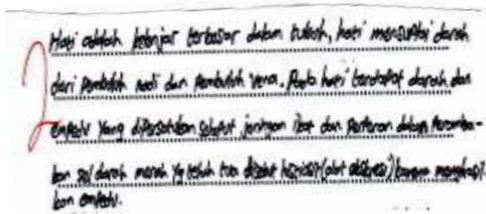 Hati adalah kelenjar terbesar dalam tubuh, hati mensuplai darah
dari Pembuluh nadi dan Pembuluh vena. Pada hati terdapat darah dan
empedu yang dipersatukan selaput jaringan ikat dan Berperan dalam Peromba-
kan sel darah merah yg telah tua disebut histiosit (alat ekskresi) karena menghasil
kan empedu.